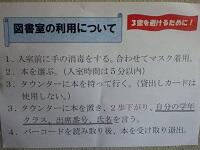 図書室の利用について
3密を避けるために！
1、入室前に手の消毒をする。合わせてマスク着用。
2、本を選ぶ。（入室時間は5分以内）
3、カウンターに本を持って行く。（貸出しカードは
使用しない。）
3、カウンターに本を置き、2歩下がり、自分の学年
クラス、出席番号、氏名を言う。
4、バーコードを読み取り後、本を受け取り退出。